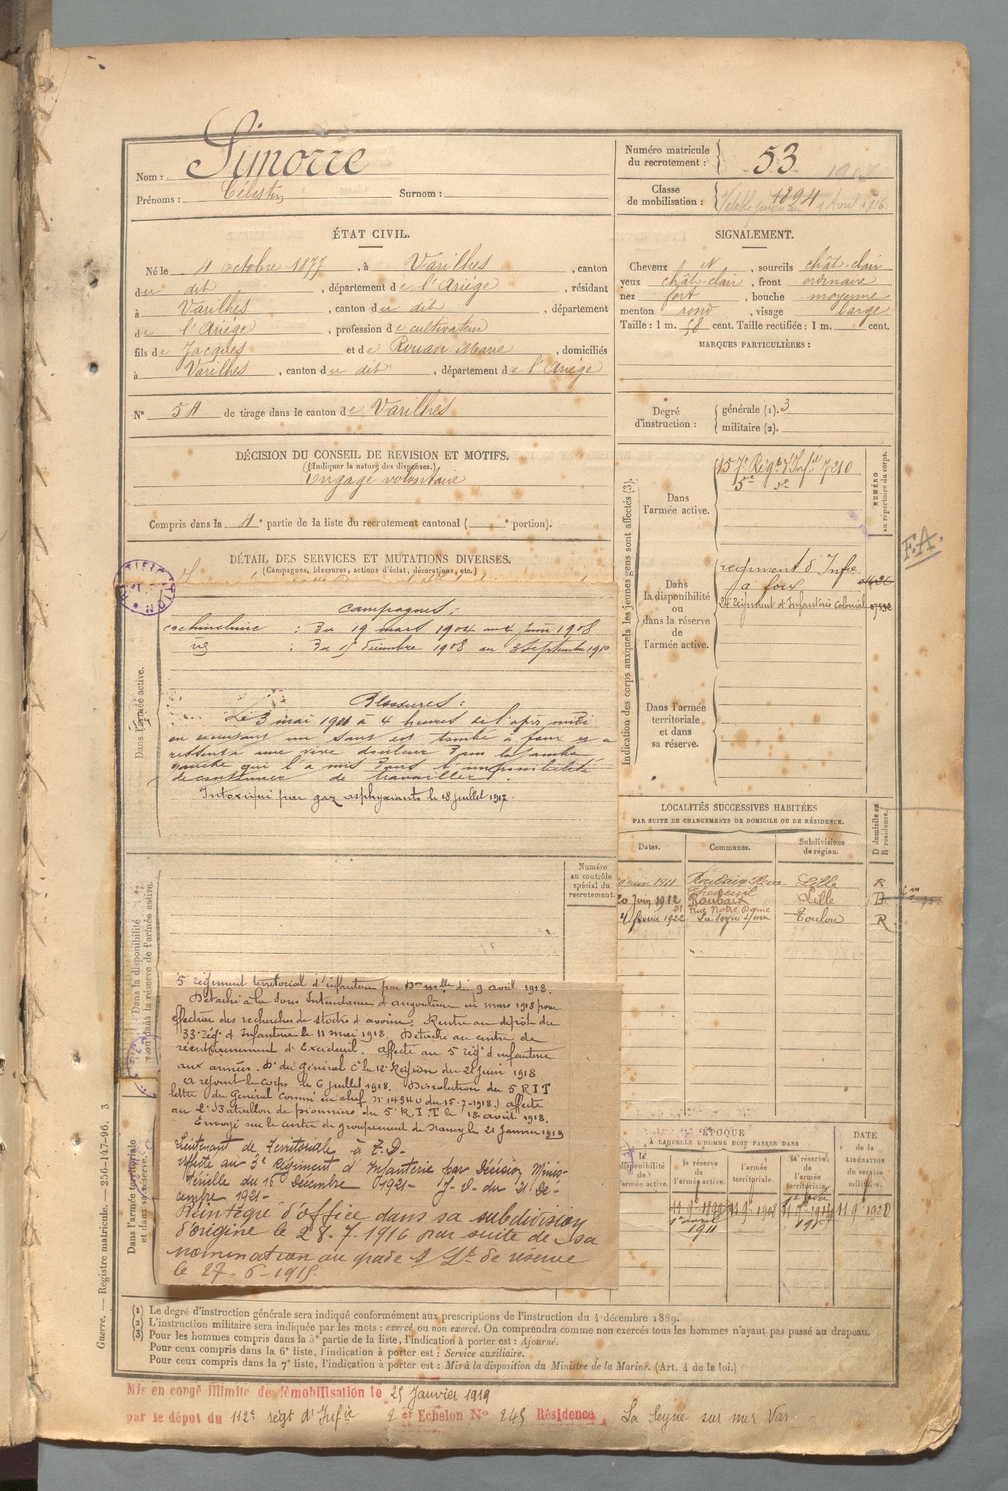 Nom : Simorre
Prénoms : Célestin Surnom :
Numéro matricule
du recrutement : 53
Classe
de mobilisation : 1894
ÉTAT CIVIL.
Né le 4 octobre 1877, à Varilhes, canton
du dit, département de l'Ariége, résidant
à Varilhes, canton du dit, département
de l'Ariége, profession de cultivateur
fils de Jacques et de Rouan Marie, domiciliés
à Varilhes, canton du dit, département de l'Ariége
N° 54 de tirage dans le canton de Varilhes
SIGNALEMENT.
Cheveux N, sourcils chât-clair
yeux chât-clair, front ordinaire
nez fort, bouche moyenne
menton rond, visage large
Taille : 1 m. 58 cent. Taille rectifiée : 1 m. cent.
MARQUES PARTICULIÈRES :
Degré
d'instruction :
générale (1). 3
militaire (2).
DÉCISION DU CONSEIL DE REVISION ET MOTIFS.
(Indiquer la nature des dispenses.)
Engagé volontaire
Compris dans la 4e partie de la liste du recrutement cantonal ( e portion).
DÉTAIL DES SERVICES ET MUTATIONS DIVERSES.
(Campagnes, blessures, actions d'éclat, décorations, etc.)
Indication des corps auxquels les jeunes gens sont affectés (3).
NUMÉRO
au répertoire du corps.
Dans
l'armée active.
157e Régt d'Infie 7210
5e do
Dans
la disponibilité
ou
dans la réserve
de
l'armée active.
régiment d'Infie
à Foix
24 régiment d'Infanterie Colonial
F.A.
Dans l'armée
territoriale
et dans
sa réserve.
Dans l'armée active.
Campagnes :
Cochinchine : Du 19 mars 1904 au 4 juin 1908
: Du 5 décembre 1908 au 3 septembre 1910
Blessures :
Le 3 mai 1900 à 4 heures de l'après midi
en exécutant un saut est tombé à faux et a
ressenti une vive douleur dans la jambe
gauche qui l'a mis dans l'impossibilité
de continuer de travailler.
Intoxiqué par gaz asphyxiants le 18 juillet 1917.
LOCALITÉS SUCCESSIVES HABITÉES
PAR SUITE DE CHANGEMENTS DE DOMICILE OU DE RÉSIDENCE.
Dates. Communes. Subdivisions
de région.
D domicile ou
R résidence.
juin 1911 Lille R
20 Juin 1912 Roubaix Lille D
Rue Notre Dame
4 février 1922 La Seyne s/mer Toulon R
Numéro
au contrôle
spécial du
recrutement.
Dans la disponibilité
ou dans la réserve de l'armée active.
5 régiment territorial d'infanterie par Don mlle du 9 avril 1918.
Détaché à la Sous Intendance d'angoulême en mars 1918 pour
effectuer des recherches de stocks d'avoine. Rentré au dépôt du
33e rég. d'Infanterie le 11 mai 1918. Détaché au centre de
réentraînement d'Excideuil. affecté au 5 rég. d'infanterie
aux armées. Dn du général Ct la 12e Région du 21 juin 1918
A rejoint le Corps le 6 juillet 1918. Dissolution du 5 R I T
lettre du Général Commt en chef n° 14340 du 15-7-1918.) affecté
au 2e Bataillon de pionniers du 5e R I T le 18 août 1918.
Envoyé sur le centre de groupement de Nancy le 21 janvier 1919
Lieutenant de Territoriale à T.D.
Affecté au 3e Régiment d'Infanterie par Décision Minis-
térielle du 15 Décembre 1921 J.O. du 21 Dé-
cembre 1921-
Réintégré d'office dans sa subdivision
d'origine le 28.7.1916 par suite de sa
nomination au grade de S/Lt de réserve
le 27-6-1915.
Dans l'armée territoriale
et dans sa réserve.
ÉPOQUE
À LAQUELLE L'HOMME DOIT PASSER DANS
DATE
de la
LIBÉRATION
du service
militaire.
la
disponibilité
de
l'armée active.
la réserve
de
l'armée active.
l'armée
territoriale.
la réserve
de
l'armée
territoriale.
(1) Le degré d'instruction générale sera indiqué conformément aux prescriptions de l'instruction du 4 décembre 1889.
(2) L'instruction militaire sera indiquée par les mots : exercé ou non exercé. On comprendra comme non exercés tous les hommes n'ayant pas passé au drapeau.
(3) Pour les hommes compris dans la 5e partie de la liste, l'indication à porter est : Ajourné.
Pour ceux compris dans la 6e liste, l'indication à porter est : Service auxiliaire.
Pour ceux compris dans la 7e liste, l'indication à porter est : Mis à la disposition du Ministre de la Marine. (Art. 4 de la loi.)
Guerre. — Registre matricule. — 256-147-96. 3
Mis en congé illimité de démobilisation le 25 Janvier 1919
par le dépôt du 112e régt d'Infie 2er Echelon N° 245 Résidence, La Seyne sur mer Var